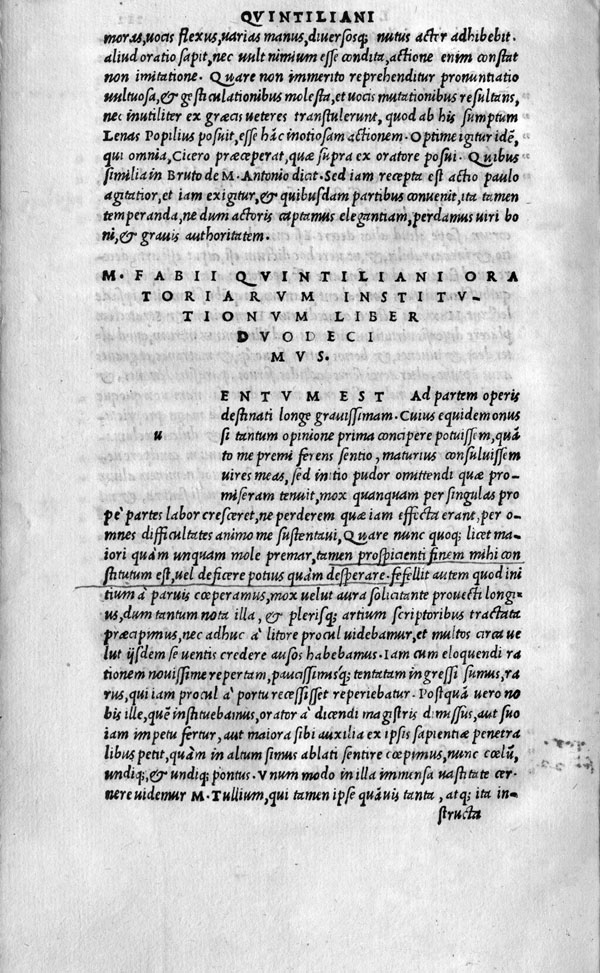 QVINTILIANI
moras, uocis flexus, uarias manus, diuersosq; nutus actor adhibebit.
aliud oratio sapit, nec uult nimium esse condita, actione enim constat
non imitatione. Quare non immerito reprehenditur pronuntiatio
uultuosa, & gesticulationibus molesta, et uocis mutationibus resultans,
nec inutiliter ex græcis ueteres transtulerunt, quod ab his sumptum
Lenas Popilius posuit, esse hāc inotiosam actionem. Optime igitur idē,
qui omnia, Cicero præceperat, quæ supra ex oratore posui. Quibus
similia in Bruto de M. Antonio dicit. Sed iam recepta est actio paulo
agitatior, et iam exigitur, & quibusdam partibus conuenit, ita tamen
temperanda, ne dum actoris captamus elegantiam, perdamus uiri bo
ni, & grauis authoritatem.
M. FABII QVINTILIANI ORA
TORIARVM INSTITV-
TIONVM LIBER
DVODECI
MVS.
ENTVM EST Ad partem operis
destinati longe grauissimam. Cuius equidem onus
u si tantum opinione prima concipere potuissem, quā
to me premi ferens sentio, maturius consuluissem
uires meas, sed initio pudor omittendi quæ pro-
miseram tenuit, mox quanquam per singulas pro
pe partes labor cresceret, ne perderem quæ iam effecta erant, per o-
mnes difficultates animo me sustentaui, Quare nunc quoq; licet ma-
iori quàm unquam mole premar, tamen prospicienti finem mihi con
stitutum est, uel deficere potius quàm desperare. fefellit autem quod ini
tium à paruis cœperamus, mox uelut aura solicitante prouecti longi-
us, dum tantum nota illa, & plerisq; artium scriptoribus tractata
præcipimus, nec adhuc à litore procul uidebamur, et multos circa ue
lut ijsdem se uentis credere ausos habebamus. Iam cum eloquendi ra
tionem nouissime repertam, paucissimisq; tentatam ingressi sumus, ra
rus, qui iam procul à portu recessisset reperiebatur. Postquā uero no
bis ille, quē instituebamus, orator à dicendi magistris dimissus, aut suo
iam impetu fertur, aut maiora sibi auxilia ex ipsis sapientiæ penetra
libus petit, quàm in altum simus ablati sentire cœpimus, nunc cœlū,
undiq;, & undiq; pontus. Vnum modo in illa immensa uastitate cer-
nere uidemur M. Tullium, qui tamen ipse quāuis tanta, atq; ita in-
structa